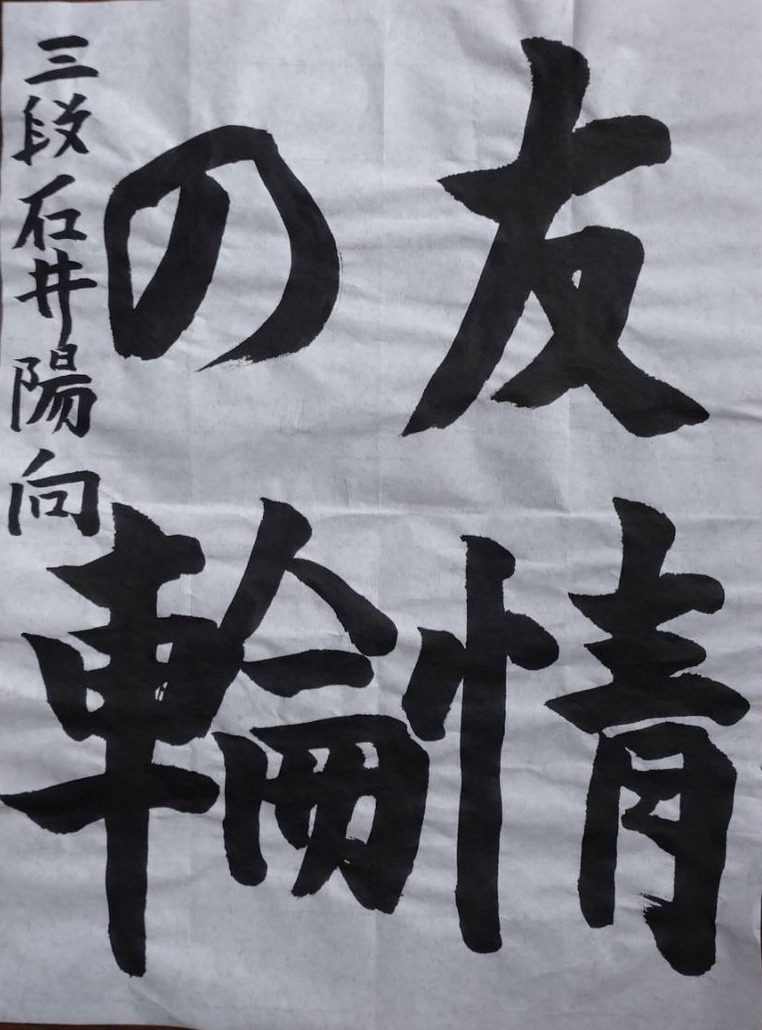 友情
の輪
三段石井陽向